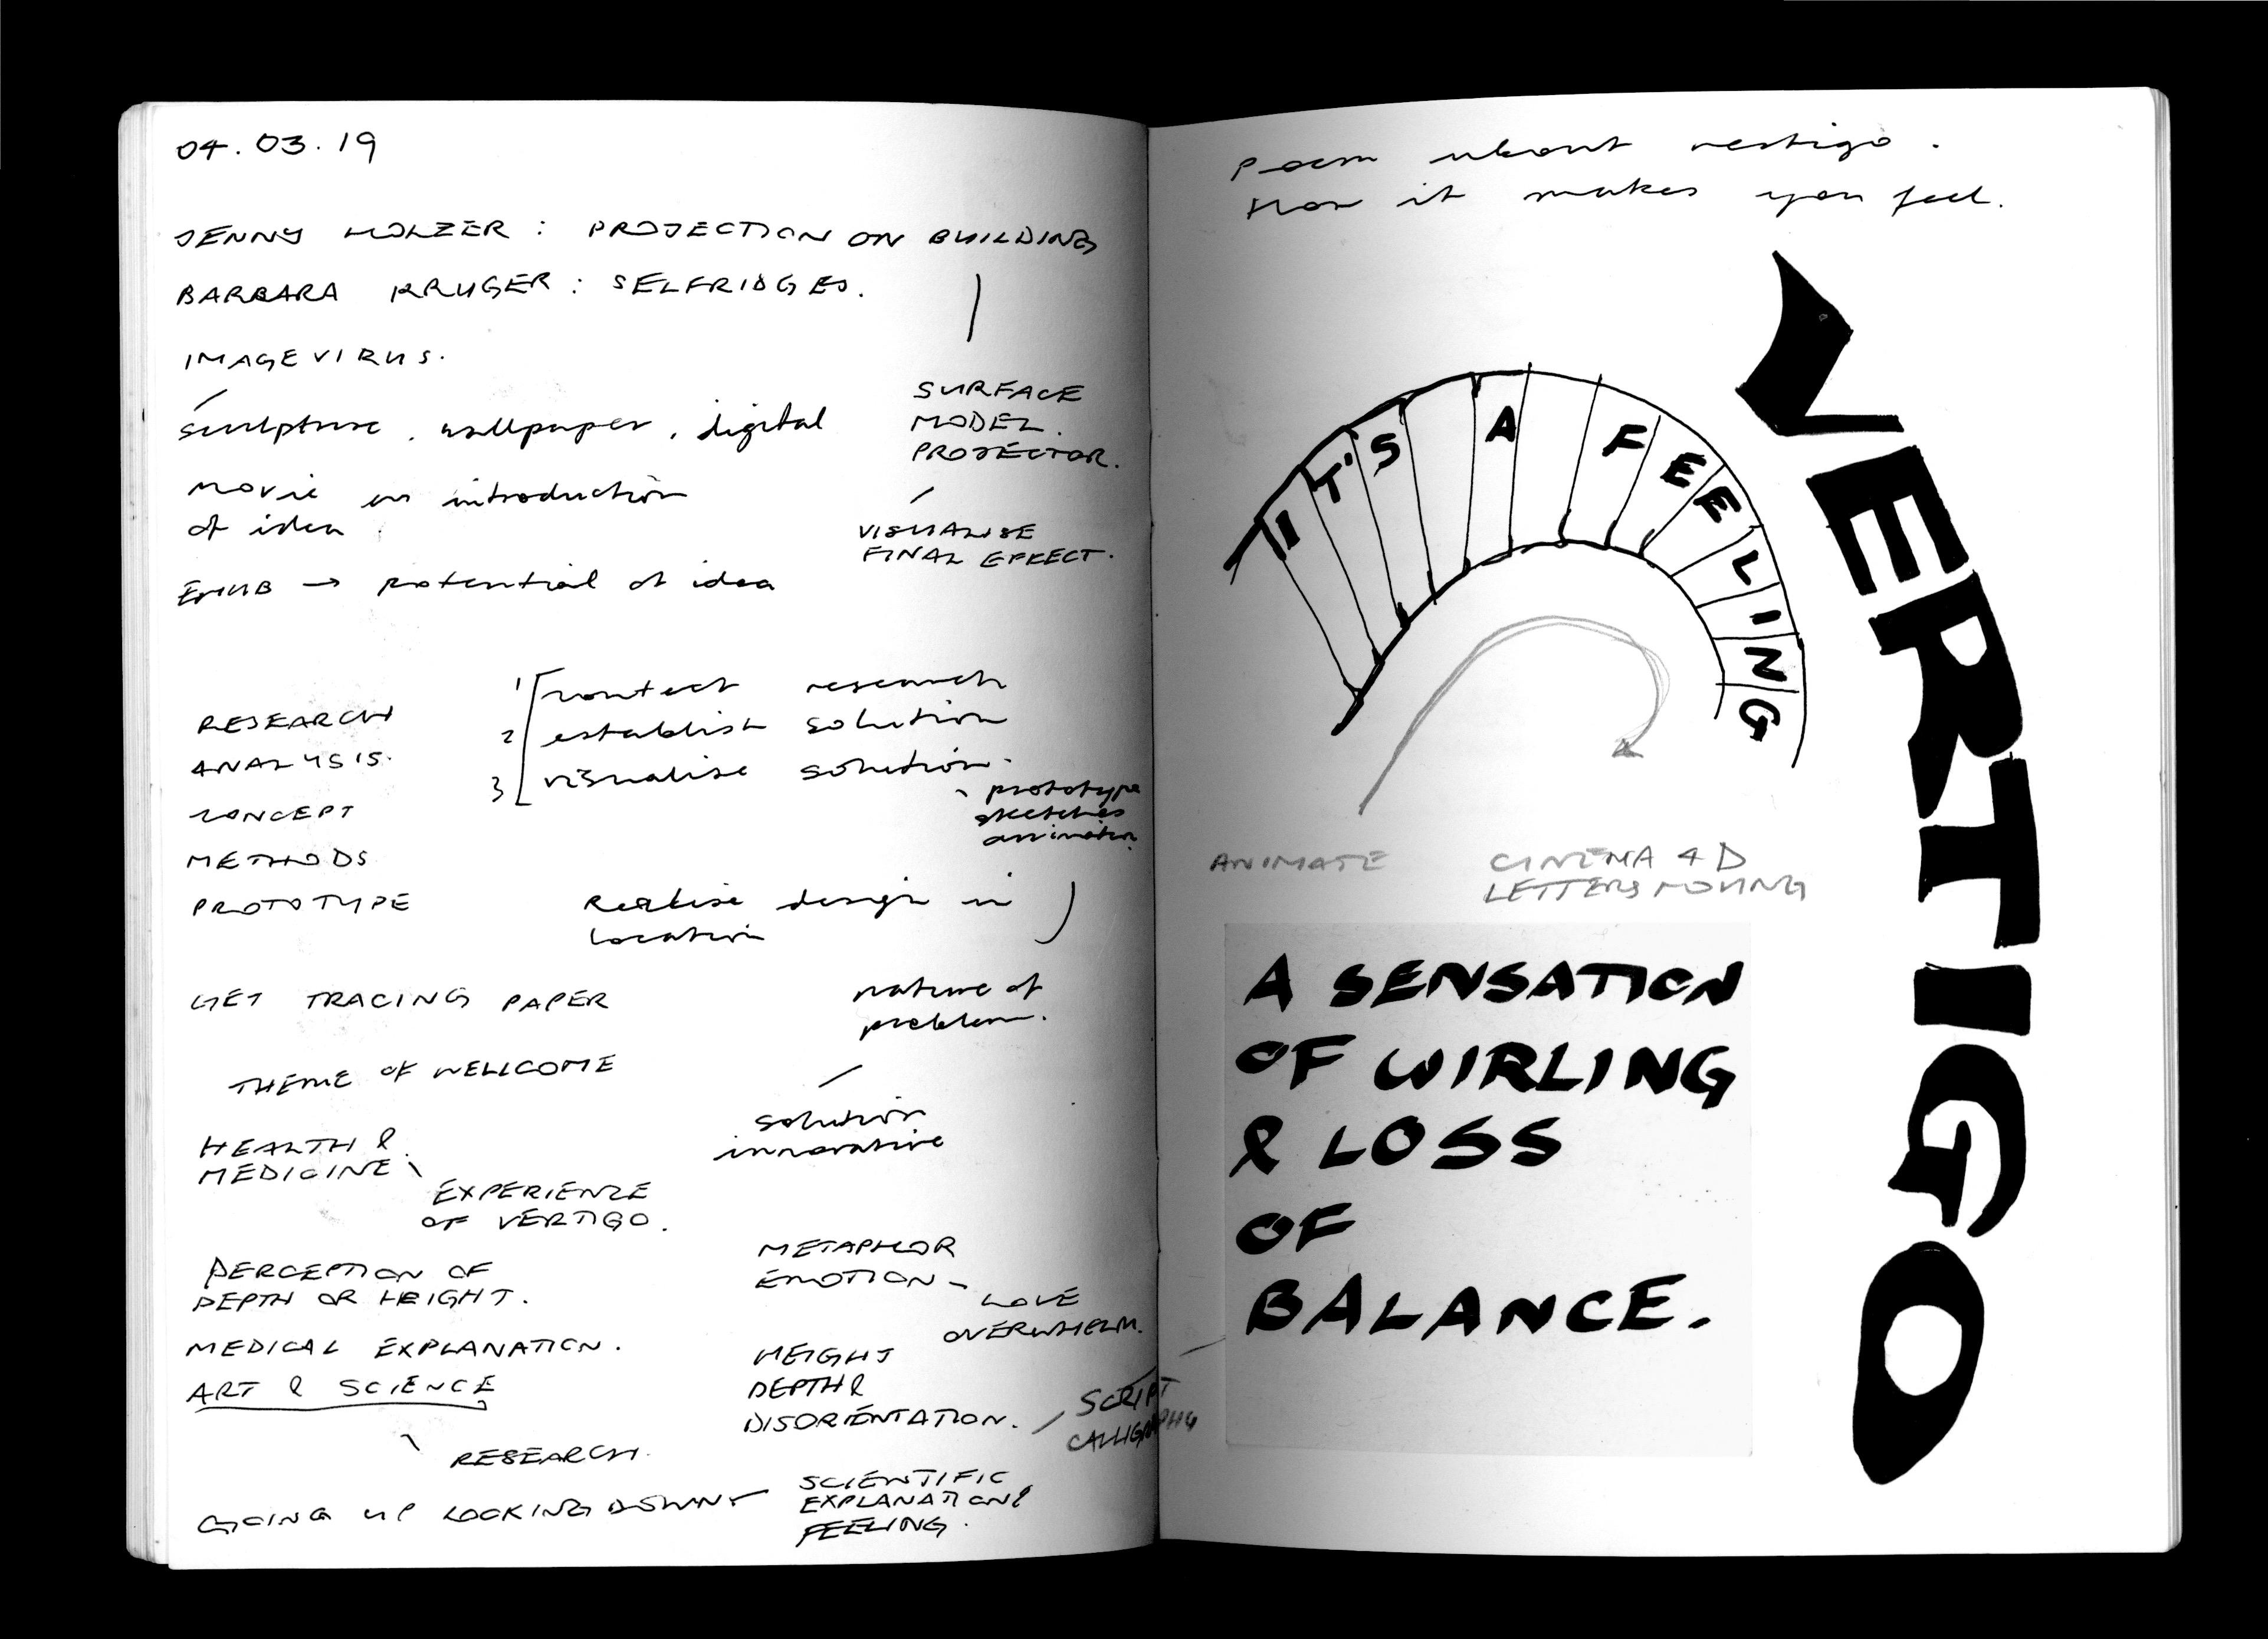 04.03.19
JENNY HOLZER : PROJECTION ON BUILDING
BARBARA KRUGER : SELFRIDGES.
IMAGE VIRUS.
sculpture, wallpaper, digital
movie as introduction
of idea
SURFACE
MODEL.
PROJECTOR.
VISUALISE
FINAL EFFECT.
→ potential of idea
RESEARCH
ANALYSIS.
CONCEPT
METHODS
PROTOTYPE
1 context research
2 establish solution
3 visualise solution.
prototype
sketches
animation
Realise design in
location
GET TRACING PAPER
nature of
problem.
THEME OF WELLCOME
solution
innovative
HEALTH &
MEDICINE
EXPERIENCE
OF VERTIGO.
PERCEPTION OF
DEPTH OR HEIGHT.
METAPHOR
EMOTION -
LOVE
OVERWHELM.
MEDICAL EXPLANATION.
ART & SCIENCE
HEIGHT
DEPTH &
DISORIENTATION.
SCRIPT
CALLIGRAPHY
RESEARCH.
GOING UP LOOKING DOWN
SCIENTIFIC
EXPLANATION &
FEELING.
Poem about vertigo.
How it makes you feel.
IT'S A FEELING
VERTIGO
ANIMATE
CINEMA 4D
LETTERS MOVING
A SENSATION
OF WIRLING
& LOSS
OF
BALANCE.